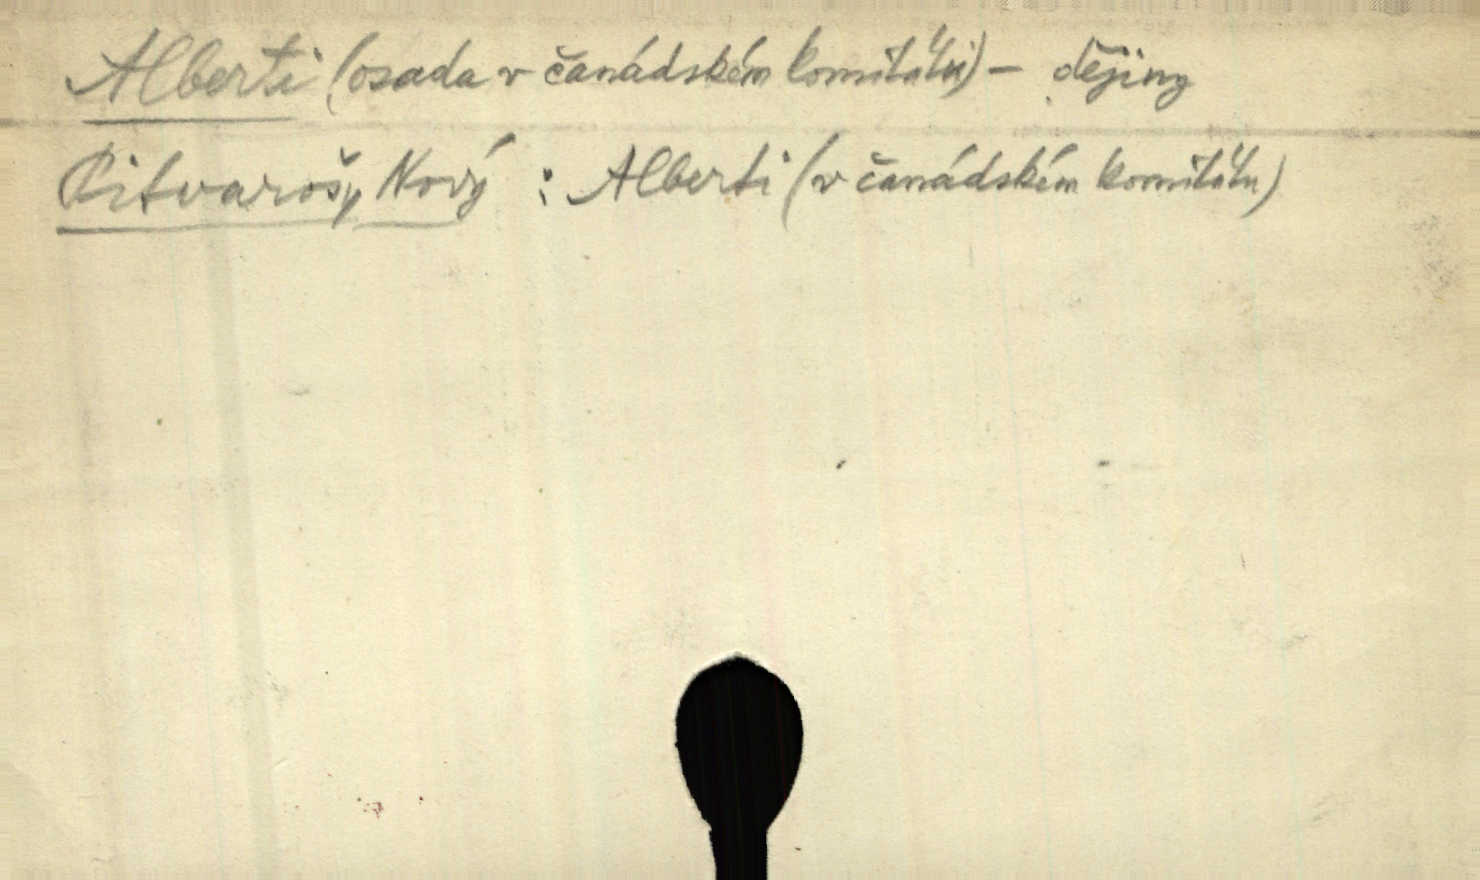 Alberti (osada v čanádském komitátu) - dějiny
Pitvaroš, Nový : Alberti (v čanádském komitátu)